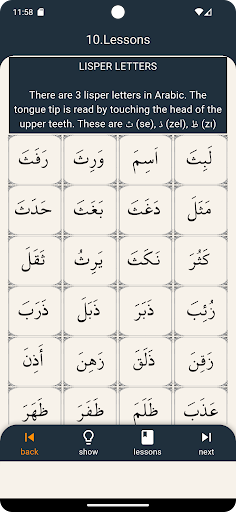 11:58
10.Lessons
LISPER LETTERS
There are 3 lisper letters in Arabic. The
tongue tip is read by touching the head of the
upper teeth. These are ث (se), ذ (zel), ظ (zı)
لَبِثَ اَثِمَ وَرِثَ رَفَثَ
مَثَلَ دَغَثَ بَغَثَ حَدَثَ
كَثُرَ نَكَثَ يَرِثُ ثَقَلَ
ذُئِبَ ذَبَرَ ذَبَلَ ذَرَبَ
ذَقِنَ ذَلَقَ ذَهِنَ أَذِنَ
عَذَبَ ظَلَمَ ظَفَرَ ظَهَرَ
back show lessons next